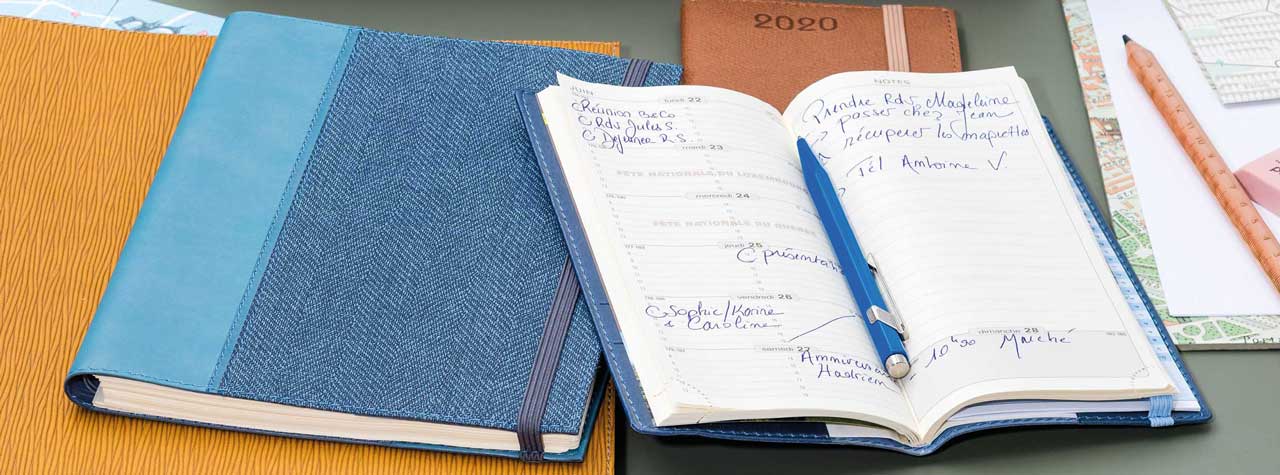 2020
JUIN
lundi 22
Réunion B&Co
Rdv Jules S.
Déjeuner R.S.
mardi 23
FÊTE NATIONALE DU LUXEMBOURG
mercredi 24
FÊTE NATIONALE DU QUÉBEC
jeudi 25
vendredi 26
Sophie/Karine
& Caroline
samedi 27
Hadrien
NOTES
Prendre Rdv Magdeleine
passer chez Jean
récupérer les maquettes
Tél Antoine V.
dimanche 28
Marché